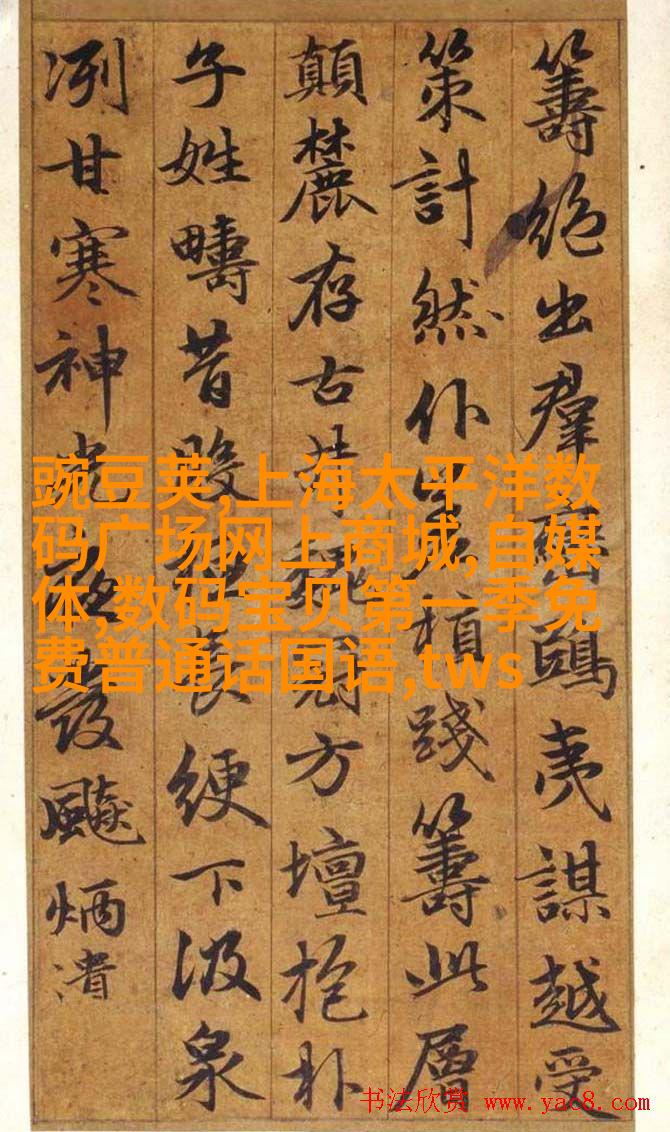 籌絕出羣鴟夷謀越受
策計然仆植踐籌此層
顛麓存古方壇抱朴
子姓疇昔綆下汲泉
冽甘寒神飈炳潰
豌豆荚,上海太平洋数
码广场网上商城,自媒
体,数码宝贝第一季免
费普通话国语,tws
书法欣赏 www.yac8.com